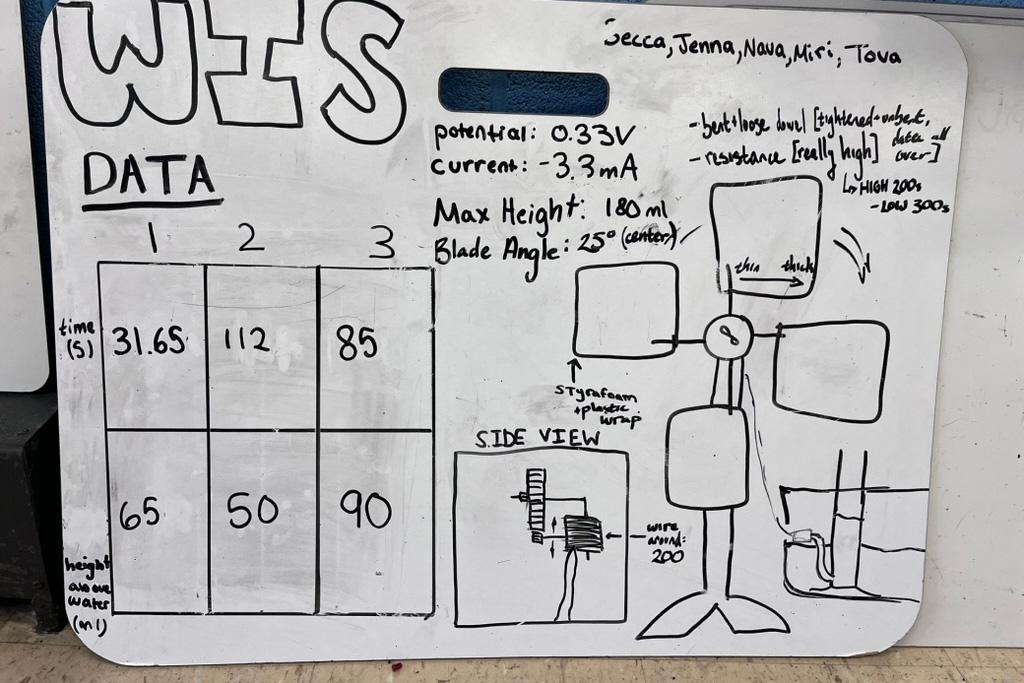 WIS
Jenna, Nava, Miri, Tova
potential: 0.33V
current: -3.3mA
- bent + loose dowel [tightened + unbent,
over]
- resistance [really high]
↳ HIGH 200s
- LOW 300s
DATA
Max Height: 180 ml
Blade Angle: 25° (center)
1 2 3
time
(s)
31.65 112 85
65 50 90
height
above
water
thin → thick
STyrafoam
+ plastic
wrap
SIDE VIEW
wire
around:
200